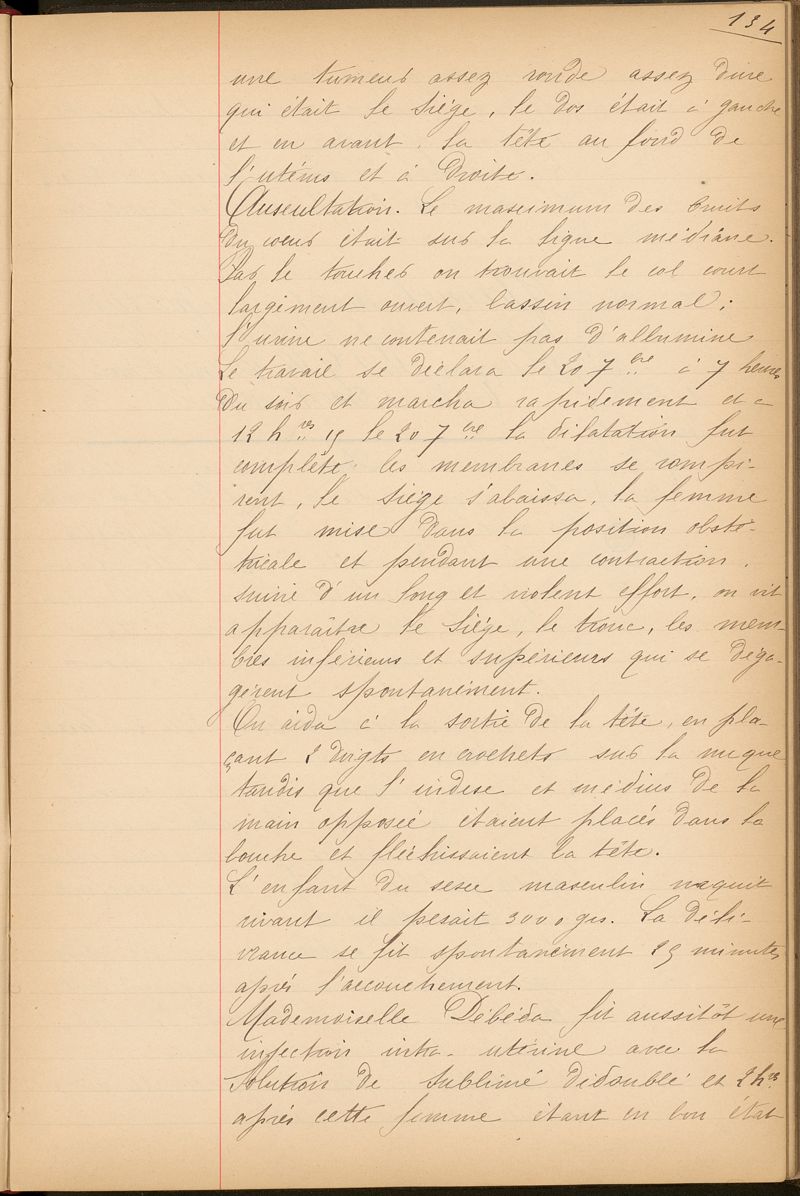 134
une tumeur assez ronde assez dure
qui était le siège, le dos était à gauche
et en avant, la tête au fond de
l'utérus et à droite.
Auscultation. Le maximum des bruits
du coeur était sur la ligne médiane.
Par le toucher on trouvait le col court
largement ouvert, bassin normal;
l'urine ne contenait pas d'albumine
Le travail se déclara le 20 7bre à 7 heures
du soir et marcha rapidement et à
12 hres 15 le 20 7bre la dilatation fut
complète, les membranes se rompi-
rent, le siège s'abaissa, la femme
fut mise dans la position obsté-
tricale et pendant une contraction,
suivie d'un long et violent effort, on vit
apparaître le siège, le tronc, les mem-
bres inférieurs et supérieurs qui se déga-
gèrent spontanément.
On aida à la sortie de la tête, en pla-
çant 2 doigts en crochets sur la nuque
tandis que l'index et médius de la
main opposée étaient placés dans la
bouche et fléchissaient la tête.
L'enfant du sexe masculin naquit
vivant il pesait 3000 grs. La déli-
vrance se fit spontanément 15 minutes
après l'accouchement.
Mademoiselle Débéda fit aussitôt une
injection intra-utérine avec la
solution de sublimé dédoublé et 2 hres
après cette femme étant en bon état